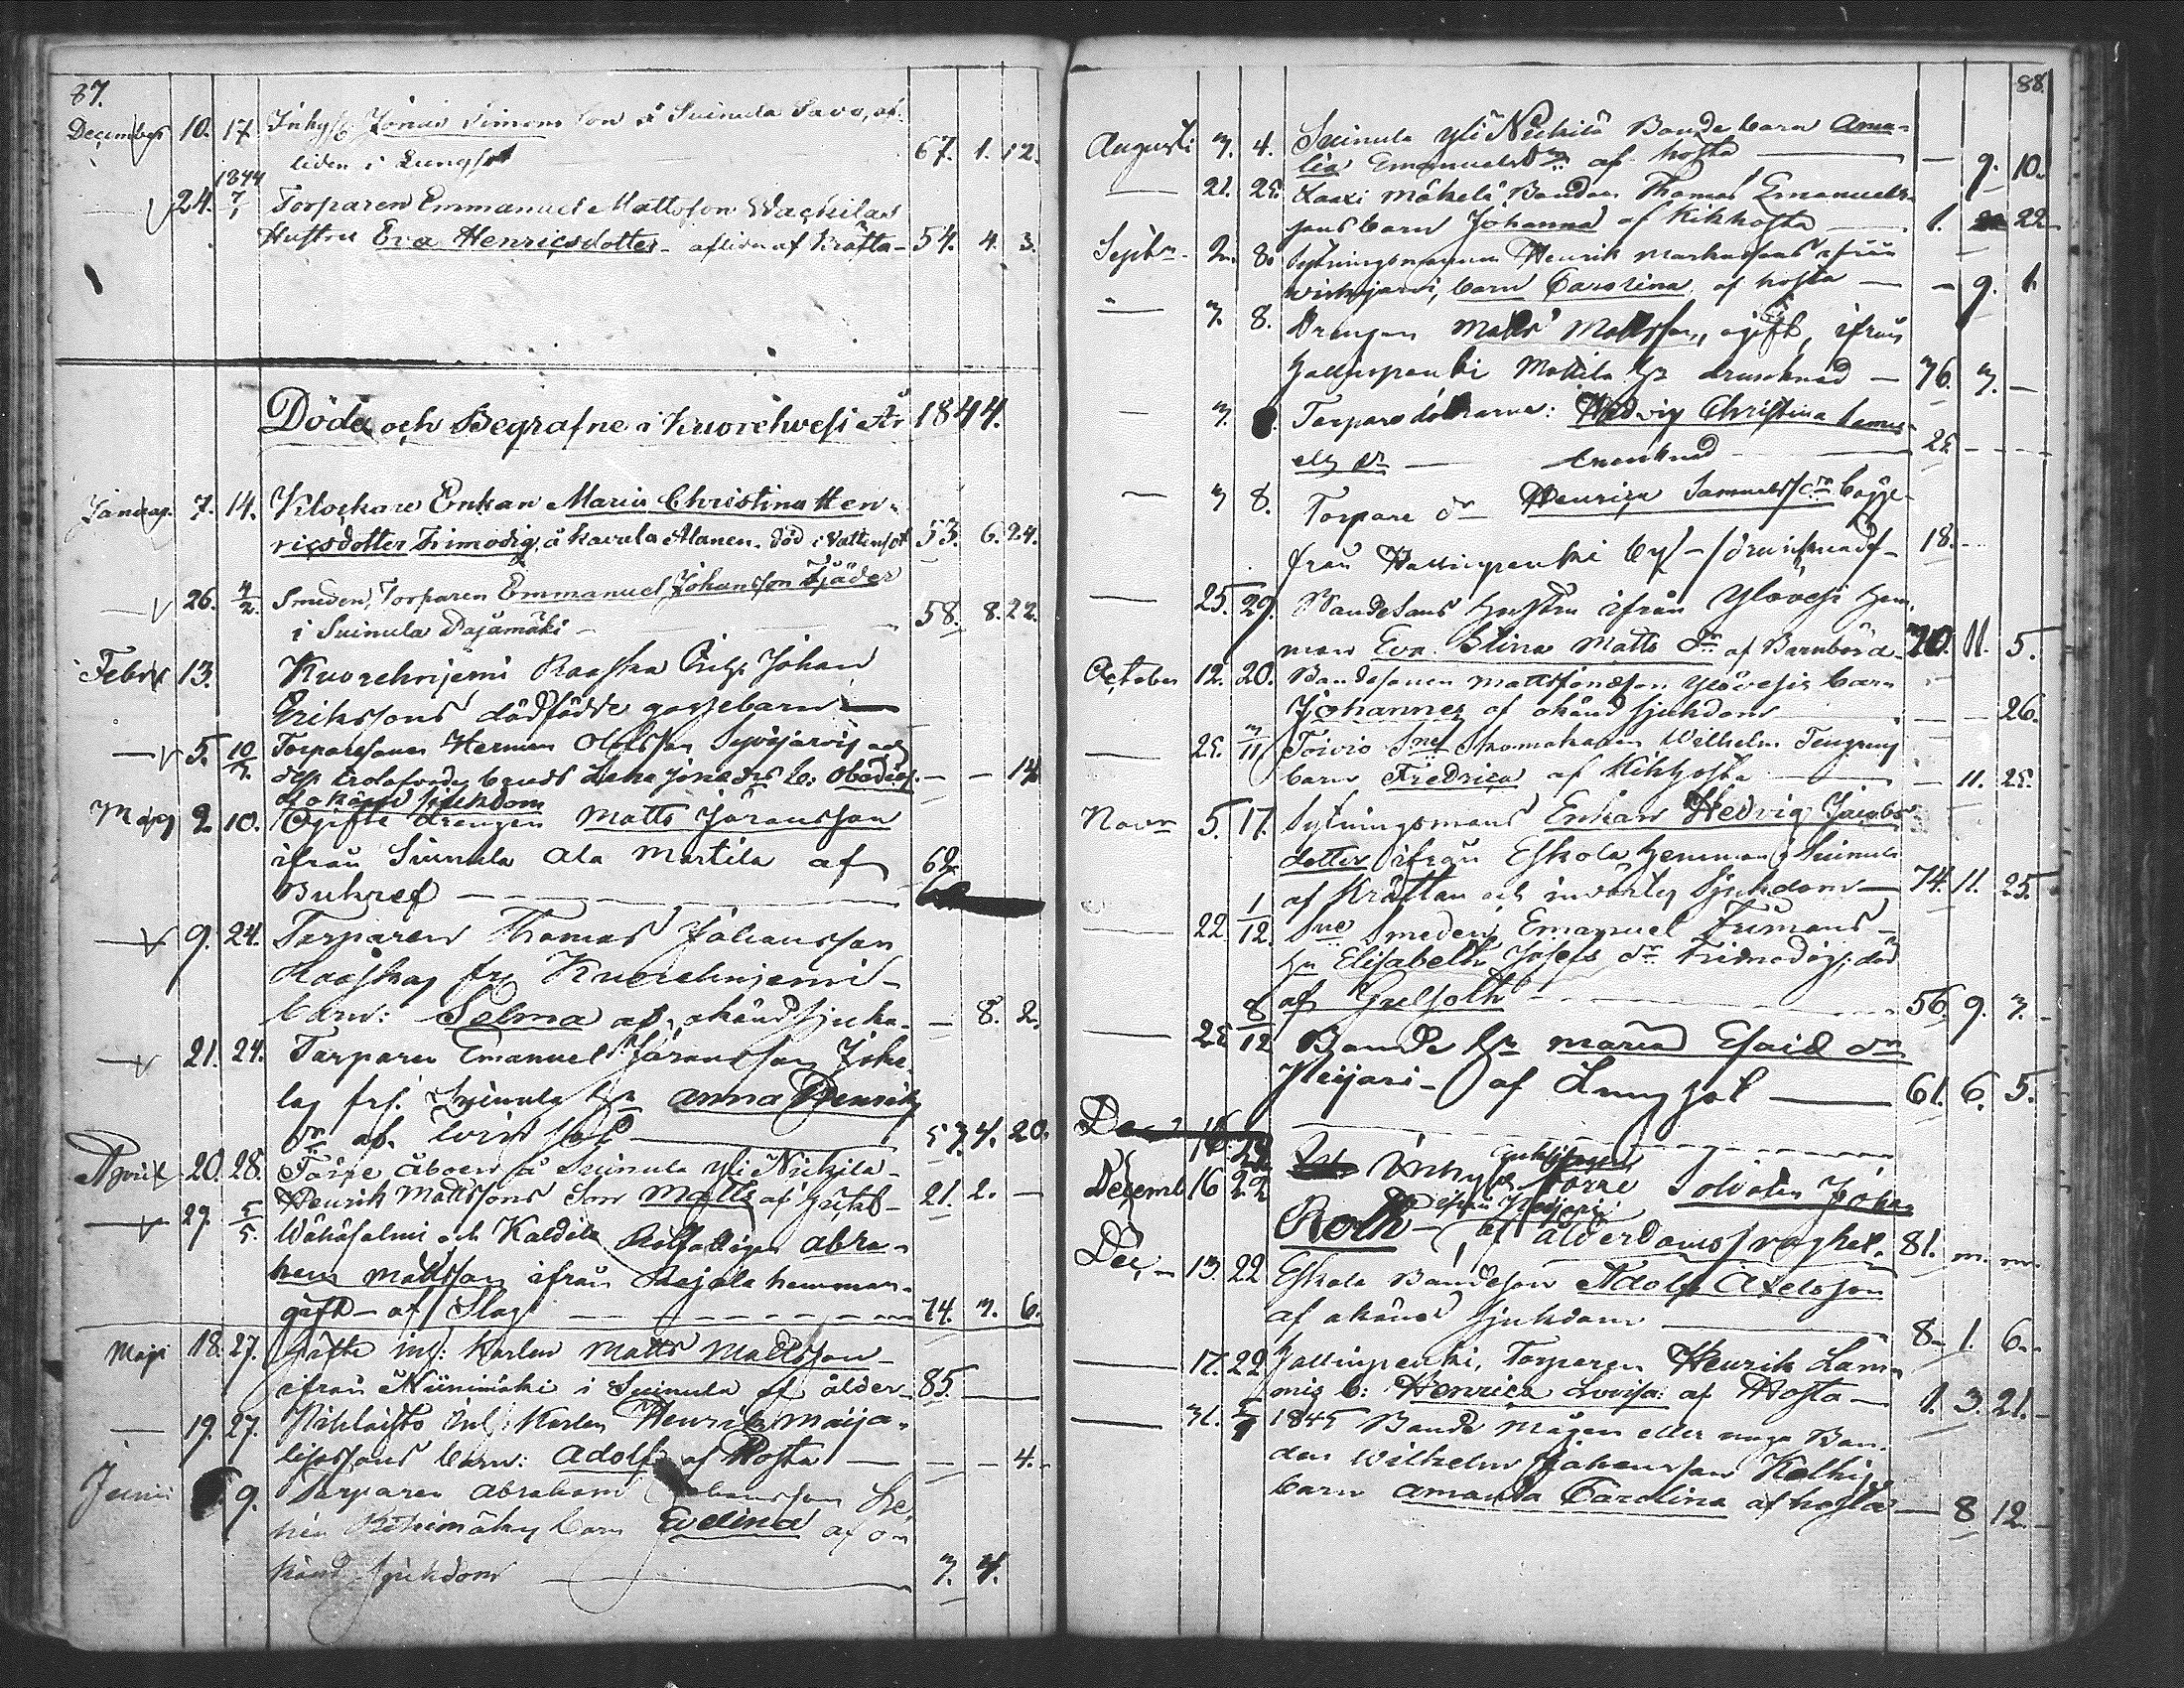 87.
December 10. 17. Inhys. Jonas Simonsson å Suinula Savo, af-
liden i Lungsot 67. 1. 12.
24. 1844 7/1 Torparen Emmanuel Mattsson Wachilas
Hustru Eva Henricsdotter afliden af Kräfta 54. 4. 3.
Döde och Begrafne i Kuorehvesi År 1844.
Januar. 7. 14. Klockare Enkan Maria Christina Hen-
ricsdotter Frimodig, å Kavala Alanen. död i Vattensot 53. 6. 24.
26. 4/2. Smeden, Torparen Emmanuel Johansson Fjäder
i Suinula Pajamäki 58. 8. 22.
Febr. 13. Kuorehniemi Raaska Johan
Erikssons dödfödde gossebarn
5. 10/3. Torparesonen Herman Olofsson
Lena b: Obadias 14.
af okänd sjukdom
Mars 2. 10. Ogifte drengen Matts Göransson
ifrån Suinula Ala Martila af
Bukref 62.
9. 24. Torparen Thomas Johansson
Raaskas fr. Kuorehniemi
barn: Selma af okänd sjukd. — 8. 2.
21. 24. Torparen Emanuel Göransson
frå. Suinula hu Anna Henriks
dr af 57. 4. 20.
April 20. 28. Torpe åboen å Suinula Yli Nickila
Henrik Mattssons Son Matts af 21. 2. —
29. 5/5. Wähäsalmi och Kaldila Rotfattigen Abra-
ham Mattsson ifrån Rajala hemman
gift af Slag 74. 7. 6.
Maji 18. 27. Gifte inh: Karlen Matts Mattsson
ifrån Niinimäki i Suinula af ålder 85.
19. 27. inh. Karlen Henrik Maija-
lissons barn: Adolf af Hosta — — 4.
Junii 9. Torparen Abraham Johansson
barn Evelina af o-
känd sjukdom 7. 4.
88.
Augusti 3. 4. Suinula Yli Nickilä Bonde barn Ama-
lia Emanuelsdr af hosta — 9. 10.
21. 25. Laaxi Mäkelä Bonden Thomas Emanuels-
sons barn Johanna af Kikhosta 1. 22.
Septbr. 2. 8. Sytningsmannen Henrik Markussons ifrån
barn Carolina af hosta — 9. 1.
7. 8. Drengen Matts Mattsson, ogift, ifrån
Hallinpenki Mattila by drunknad 36. 7. —
7. Torpare döttrarne: Hedvig Christina Samu-
els dr drunknad 25
7 8. Torpare dr Henrica Samuelsdr
från Hallinpenki by drunknad 18.
25. 29. Bondesons hustru ifrån Ylövesi hem-
man Eva Stina Matts dr af Barnbörd 20. 11. 5.
October 12. 20. Bondesonen Mattssons Ylövesis barn
Johannes af okänd sjukdom — — 26.
25. 3/11 Toivio Skomakaren Wilhelm
barn Fredrica af Kikhosta — 11. 25.
Novr 5. 17. Sytningsmans Enkan Hedvig Jacobs
dotter ifrån Eskola hemman i Suinula
af Kräftan och invärtes sjukdom 74. 11. 25.
22. 1/12. Smeden Emanuel
hu Elisabeth Josefs dr Frimodig; död
af Gulsoth 56. 9. 3.
25 8/12 Bonde hu Maria Esaid dr
Heijari af Lungsot 61. 6. 5.
Decemb 16 22 Inhys Torne Soldaten Johan
Roth af ålderdomssvaghet. 81. m. m.
Dec. 13. 22 Eskola Bondeson Adolf Axelsson
af okänd sjukdom 8. 1. 6.
17. 22. Hallinpenki, Torparen Henrik Lam-
mis b: Henrica Lovisa: af Hosta 1. 3. 21.
31. 1845 Bonde Mågen eller unga Bon-
den Wilhelm Johansson
barn Amanda Carolina af hosta — 8 12.